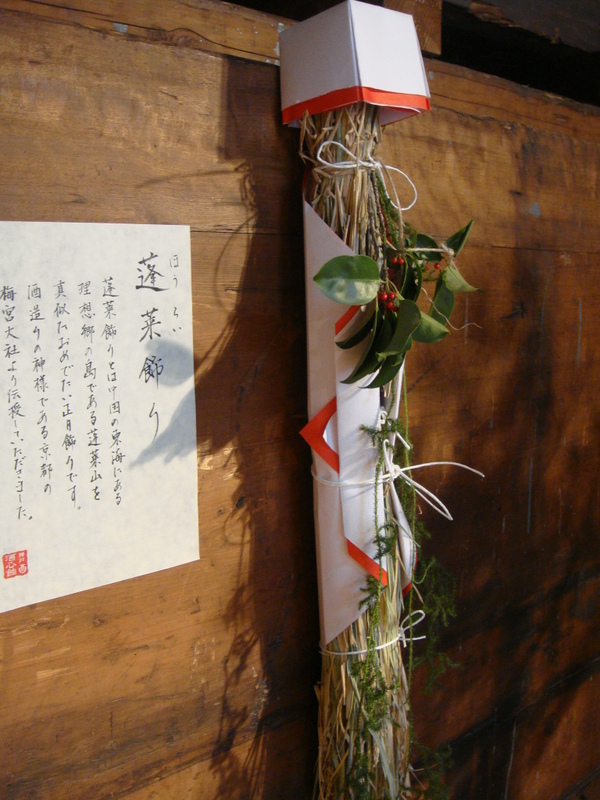 ほうらい
蓬莱飾り
蓬莱飾りとは中国の東海にある
理想郷の島である蓬莱山を
真似たおめでたい正月飾りです。
酒造りの神様である京都の
梅宮大社より伝授していただきました。
酒心館